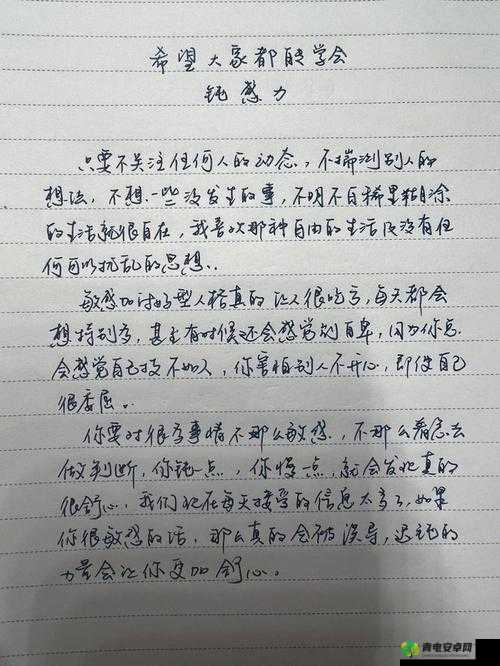 希望大家都能学会
钝感力
只要不关注任何人的动态，不揣测别人的
想法，不想一些没发生的事，不明不白稀里糊涂
的生活就很自在，我喜欢那种自由的生活反没有任
何可以扰乱的思想..
敏感加讨好型人格真的让人很吃亏，每天都会
想特别多，甚至有时候还会感觉到自卑，因为你总
会感觉自己技不如人，你害怕别人不开心，即使自己
很委屈。
你要对很多事情不那么敏感，不那么着急去
做判断，你钝一点，你慢一点，就会发现真的
很舒心，我们现在每天接受的信息太多了，如果
你很敏感的话，那么真的会被误导，迟钝的
力量会让你更加舒心。
青电安卓网